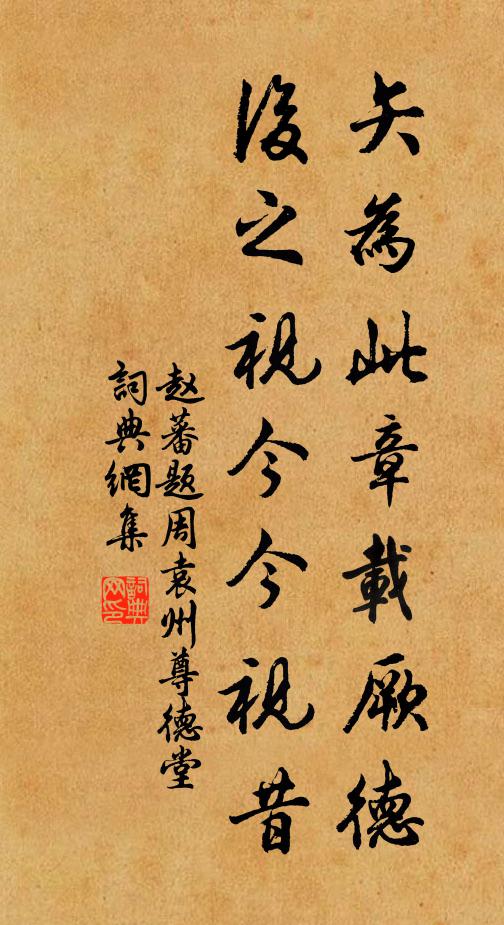 矢為此章載厥德
後之視今今視昔
赵蕃题周袁州尊德堂
詞典網集
詞典网印